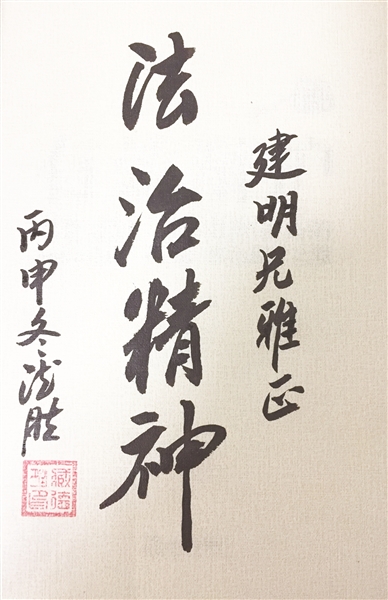 建明兄雅正
法治精神
丙申冬德胜